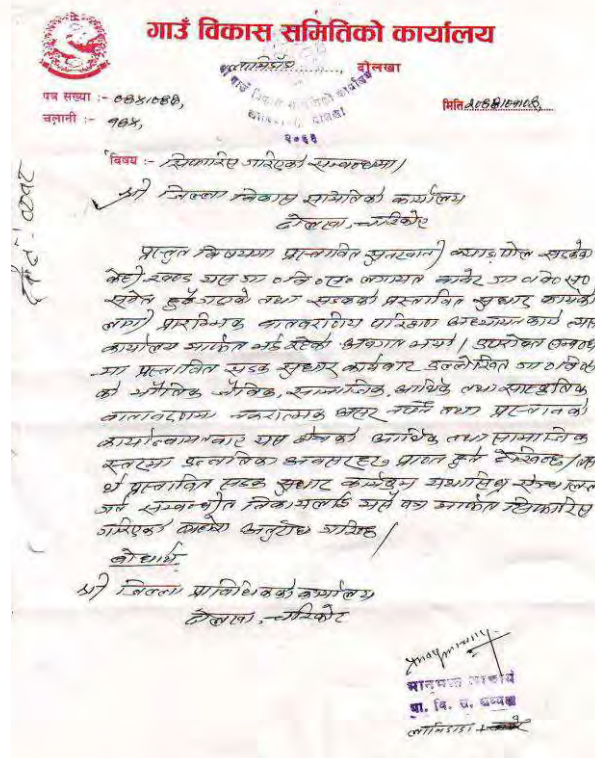 गाउँ विकास समितिको कार्यालय
दोलखा
गाउँ विकास समितिको कार्यालय
२०६६
पत्र संख्या :- ०६५/०६६,
चलानी :- १६५,
मिति
विषय :- सिफारिस गरिएको सम्बन्धमा।
श्री जिल्ला विकास समितिको कार्यालय
दोलखा, चरिकोट
प्रस्तुत विषयमा प्रस्तावित सडकको
केही खण्ड यस गा०वि०स० लगायत गा०वि०स०
समेत तथा सडकको प्रस्तावित सुधार कार्यको
लागी प्रारम्भिक वातावरणीय परिक्षण अध्ययन कार्य त्यस
कार्यालय मार्फत भई रहेको अवगत भयो। उपरोक्त सम्बन्ध
मा प्रस्तावित सडक सुधार कार्यबाट उल्लेखित गा०वि०स
को भौतिक जैविक, सामाजिक, आर्थिक तथा सांस्कृतिक
वातावरणमा नकरात्मक असर नपर्ने तथा प्रस्तावको
कार्यान्वयनबाट यस क्षेत्रको आर्थिक तथा सामाजिक
स्तरमा अवसरहरु प्राप्त हुने देखिन्छ।
र्थ प्रस्तावित सडक सुधार कार्यक्रम यथासिघ्र संचालन
गर्न सम्बन्धीत निकायलाई यसै पत्र मार्फत सिफारिस
गरिएको अनुरोध गरिन्छ।
बोधार्थ
श्री जिल्ला प्राविधिकको कार्यालय
दोलखा, चरिकोट
गा. वि. स. अध्यक्ष